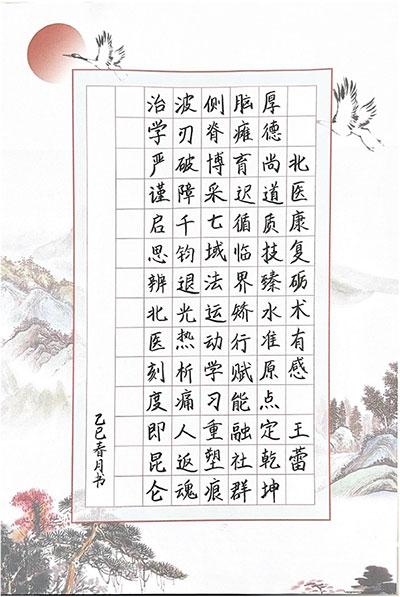 北医康复砺术有感 王蕾
厚德尚道质技臻水准原点定乾坤
脑瘫育迟循临界矫行赋能融社群
侧脊博采七域法运动学习重塑痕
波刃破障千钧退光热析痛人返魂
治学严谨启思辨北医刻度即昆仑
乙巳春月书